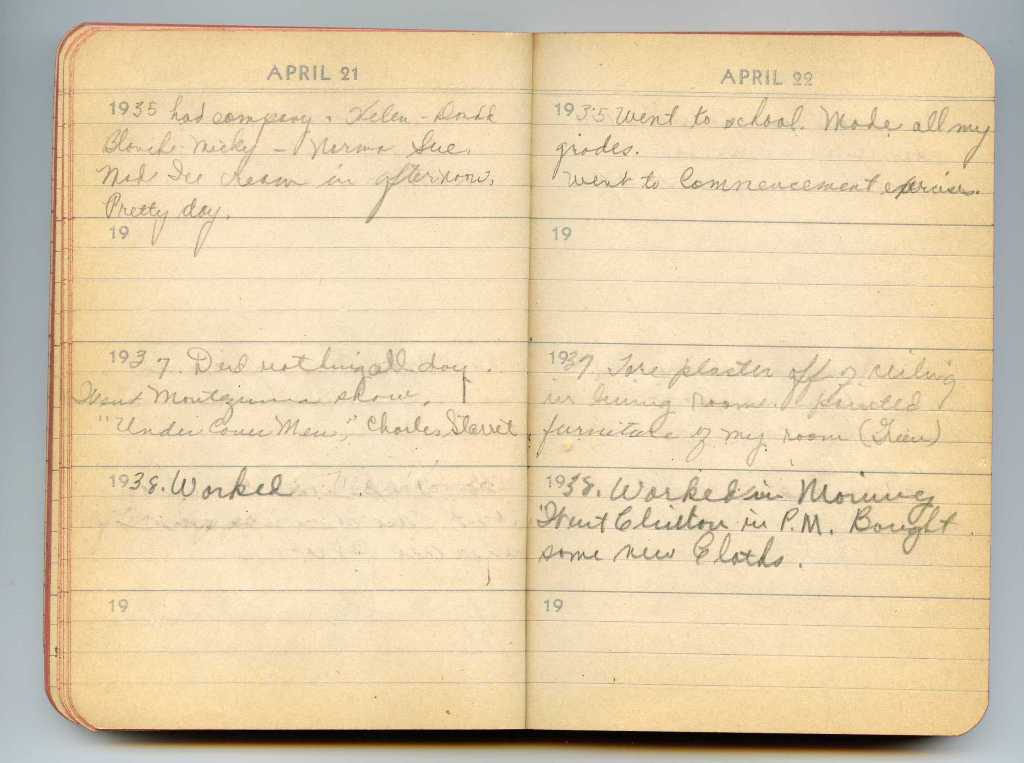 APRIL 21
1935 had company. Helen - Donald
Blanche Nicky - Norma Sue.
Made Ice Kream in afternoon.
Pretty day.
19
1937. Did nothing all day.
Went Montezuma show.
"Under Cover Men," Charles Starret
1938. Worked
19
APRIL 22
1935 Went to school. Made all my
grades.
Went to Commencement exercises.
19
1937 Tore plaster off of ceiling
in living room. Painted
furniture of my room (Green)
1938. Worked in Morning
Went Clinton in P.M. Bought
some new Cloths.
19